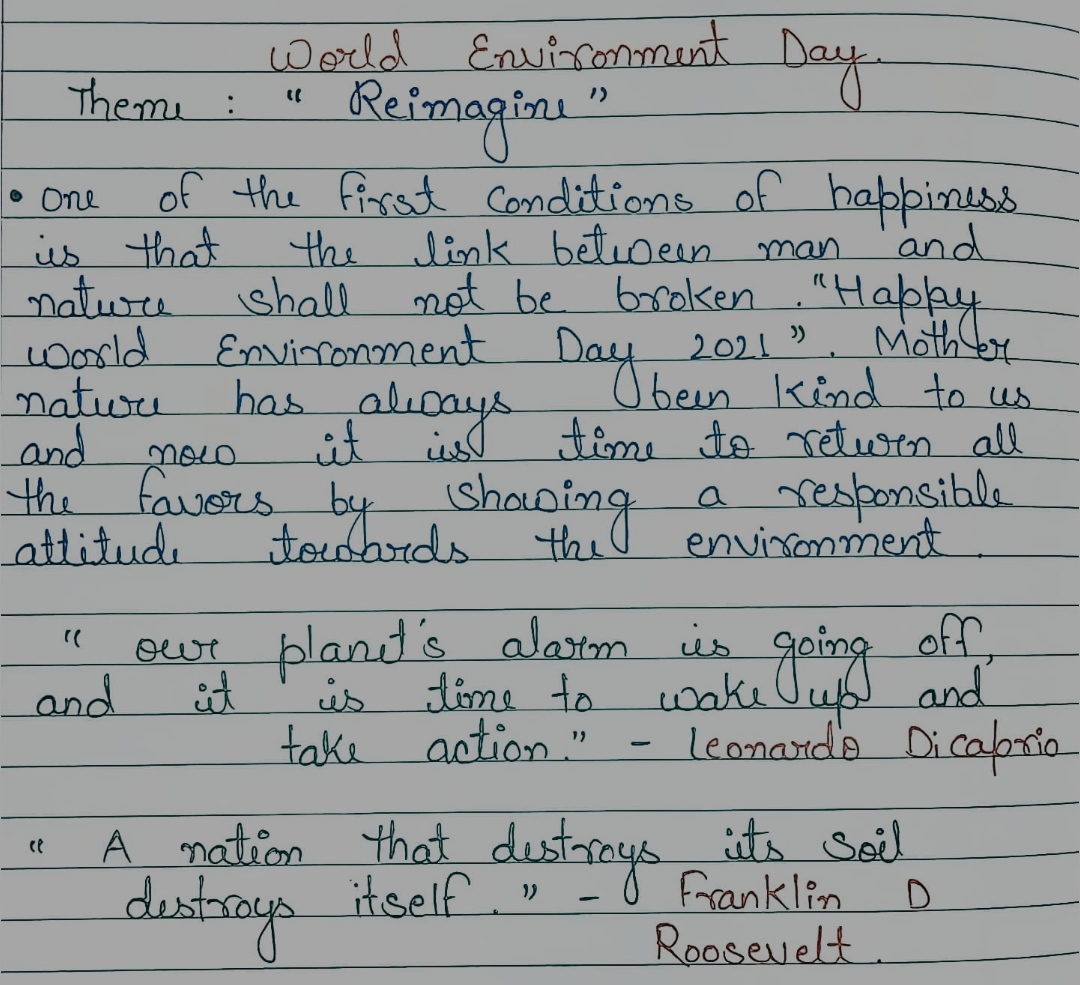 World Environment Day.
Theme : " Reimagine"
• One of the first Conditions of happiness
is that the link between man and
nature shall not be broken . "Happy
world Environment Day 2021". Mother
nature has always been kind to us
and now it is time to return all
the favors by showing a responsible
attitude towards the environment .
" our planet's alarm is going off,
and it is time to wake up and
take action." - Leonardo Dicaprio
" A nation that destroys its soil
destroys itself ." - Franklin D
Roosevelt .